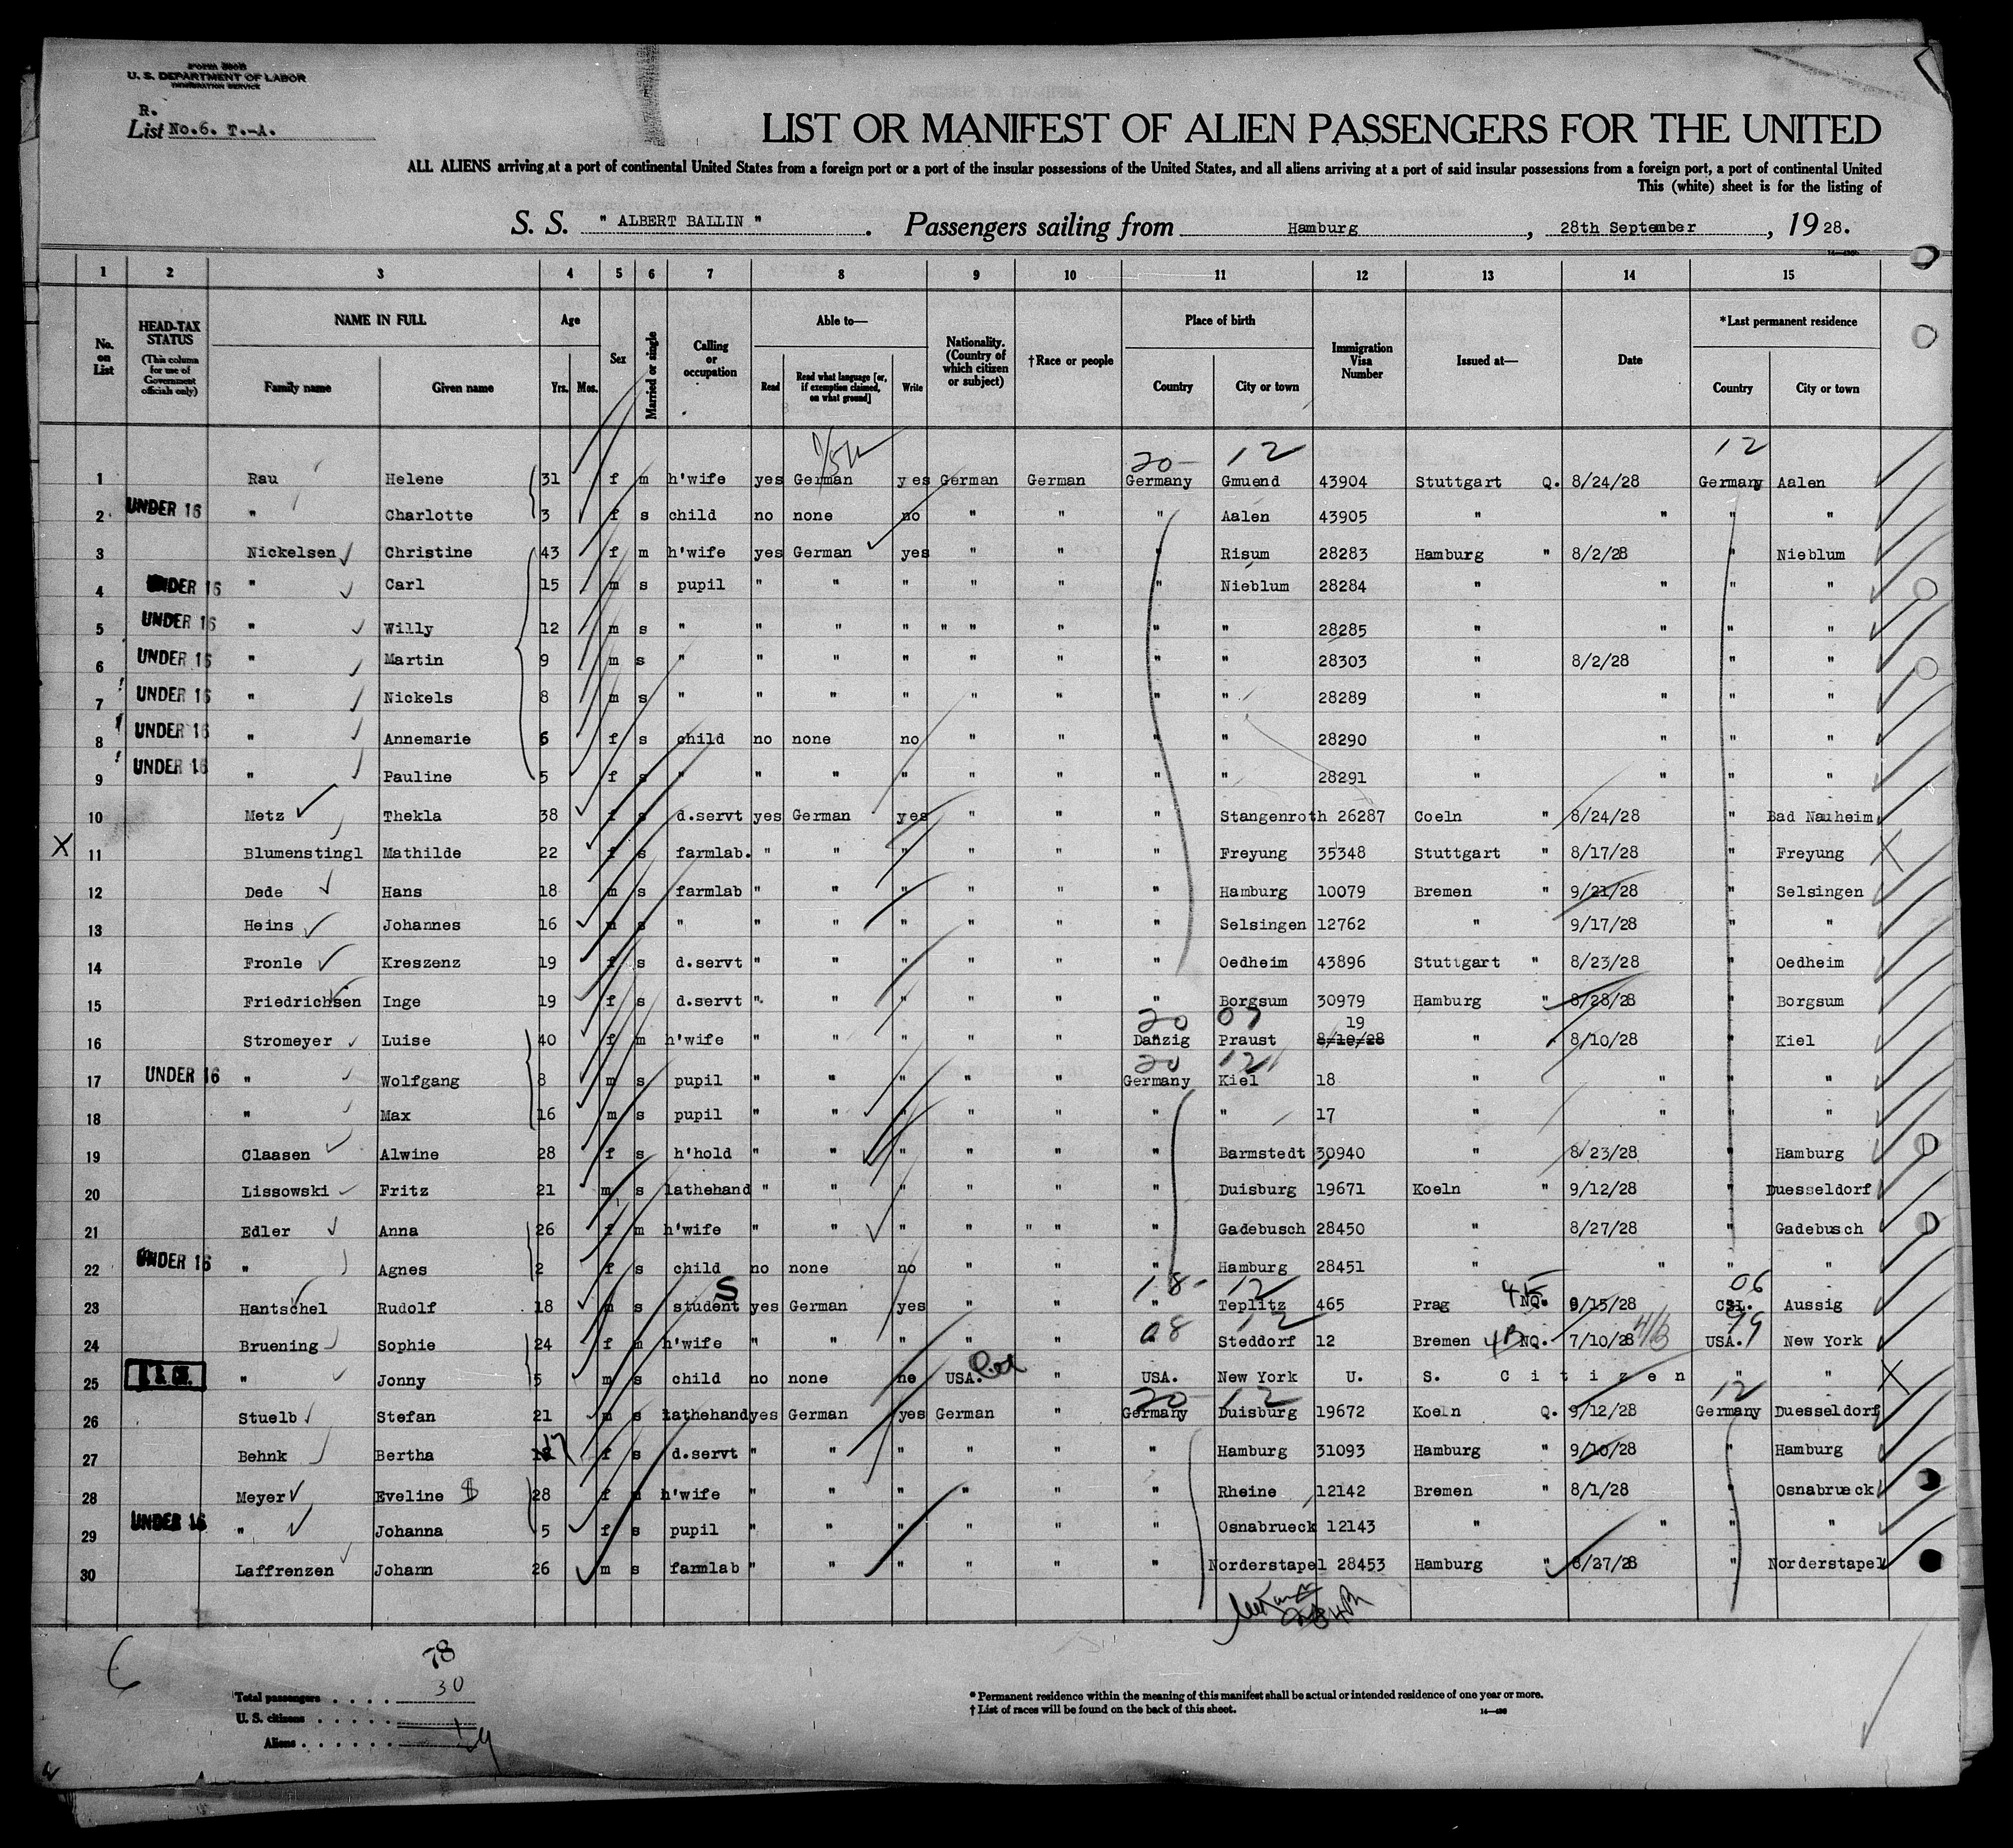 Form 500B
U. S. DEPARTMENT OF LABOR
IMMIGRATION SERVICE
R.
List No.6. T.-A.
LIST OR MANIFEST OF ALIEN PASSENGERS FOR THE UNITED
ALL ALIENS arriving at a port of continental United States from a foreign port or a port of the insular possessions of the United States, and all aliens arriving at a port of said insular possessions from a foreign port, a port of continental United
This (white) sheet is for the listing of
S. S. " ALBERT BALLIN " . Passengers sailing from Hamburg , 28th September , 19 28.
1 2 3 4 5 6 7 8 9 10 11 12 13 14 15
No. on List
HEAD-TAX STATUS (This column for use of Government officials only)
NAME IN FULL Family name Given name
Age Yrs. Mos.
Sex
Married or single
Calling or occupation
Able to— Read Read what language [or, if exemption claimed, on what ground] Write
Nationality. (Country of which citizen or subject)
†Race or people
Place of birth Country City or town
Immigration Visa Number
Issued at—
Date
*Last permanent residence Country City or town
20- 12 12
1 Rau Helene 31 f m h'wife yes German yes German German Germany Gmuend 43904 Stuttgart Q. 8/24/28 Germany Aalen
2 UNDER 16 " Charlotte 3 f s child no none no " " " Aalen 43905 " " " "
3 Nickelsen Christine 43 f m h'wife yes German yes " " " Risum 28283 Hamburg " 8/2/28 " Nieblum
4 UNDER 16 " Carl 15 m s pupil " " " " " " Nieblum 28284 " " " "
5 UNDER 16 " Willy 12 m s " " " " " " " " " 28285 " " " "
6 UNDER 16 " Martin 9 m s " " " " " " " " 28303 " 8/2/28 " "
7 UNDER 16 " Nickels 8 m s " " " " " " " " 28289 " " " "
8 UNDER 16 " Annemarie 6 f s child no none no " " " " 28290 " " " "
9 UNDER 16 " Pauline 5 f s " " " " " " " " 28291 " " " "
10 Metz Thekla 38 f s d.servt yes German yes " " " Stangenroth 26287 Coeln " 8/24/28 " Bad Nauheim
X 11 Blumenstingl Mathilde 22 f s farmlab. " " " " " " Freyung 35348 Stuttgart " 8/17/28 " Freyung X
12 Dede Hans 18 m s farmlab " " " " " " Hamburg 10079 Bremen " 9/21/28 " Selsingen
13 Heins Johannes 16 m s " " " " " " " Selsingen 12762 " 9/17/28 " "
14 Fronle Kreszenz 19 f s d.servt " " " " " " Oedheim 43896 Stuttgart " 8/23/28 " Oedheim
15 Friedrichsen Inge 19 f s d.servt " " " " " " Borgsum 30979 Hamburg " 8/28/28 " Borgsum
20 07 19
16 Stromeyer Luise 40 f m h'wife " " " " " Danzig Praust 8/10/28 " " 8/10/28 " Kiel
20 12
17 UNDER 16 " Wolfgang 8 m s pupil " " " " " Germany Kiel 18 " " " "
18 " Max 16 m s pupil " " " " " " " 17 " " " "
19 Claasen Alwine 28 f s h'hold " " " " " " Barmstedt 30940 " 8/23/28 " Hamburg
20 Lissowski Fritz 21 m s lathehand " " " " " " Duisburg 19671 Koeln " 9/12/28 " Duesseldorf
21 Edler Anna 26 f m h'wife " " " " " " " Gadebusch 28450 " 8/27/28 " Gadebusch
22 UNDER 16 " Agnes 2 f s child no none no " " " Hamburg 28451 " " " "
S 18- 12 4E 06
23 Hantschel Rudolf 18 m s student yes German yes " " " Teplitz 465 Prag NQ. 9/15/28 CSL. Aussig
08 12 4B 4/B 99
24 Bruening Sophie 24 f m h'wife " " " " " " Steddorf 12 Bremen NQ. 7/10/28 USA. New York
25 " Jonny 5 m s child no none no USA. " USA. New York U. S. Citizen " " X
20- 12 12
26 Stuelb Stefan 21 m s lathehand yes German yes German " Germany Duisburg 19672 Koeln Q. 9/12/28 Germany Duesseldorf
27 Behnk Bertha 17 f s d.servt " " " " " " Hamburg 31093 Hamburg " 9/10/28 " Hamburg
28 Meyer Eveline 28 f m h'wife " " " " " " Rheine 12142 Bremen " 8/1/28 " Osnabrueck
29 UNDER 16 " Johanna 5 f s pupil " " " " " " Osnabrueck 12143 " " " "
30 Laffrenzen Johann 26 m s farmlab " " " " " " Norderstapel 28453 Hamburg " 8/27/28 " Norderstapel
78
Total passengers . . . . 30
U. S. citizens . . . . .
Aliens . . . . . .
* Permanent residence within the meaning of this manifest shall be actual or intended residence of one year or more.
† List of races will be found on the back of this sheet.
14—430